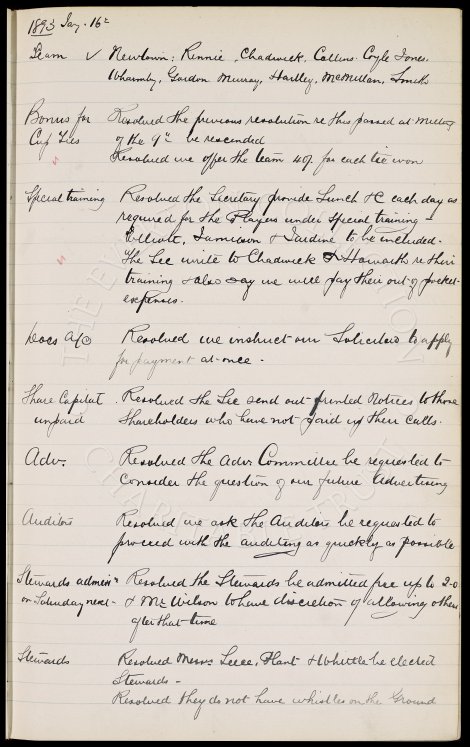 1893 Jany. 16th
Team ✓ Newtown: Rennie, Chadwick, Collins. Coyle Jones.
Whamby, Gordon Murray, Hartley, McMillan, Smith
Bonus for Resolved the previous resolution re this passed at Meeting
Cup Ties of the 9th be rescinded
Resolved we offer the team 40/- for each tie won
Special training Resolved the Secretary provide Lunch &c each day as
required for the Players under special training -
Elliott, Jamieson & Jardine to be included.
The Sec write to Chadwick & Howarth re their
training & also say we will pay their out-of-pocket-
expenses.
Docs a/c Resolved we instruct our Solicitors to apply
for payment at once.
Share Capital Resolved the Sec send out printed notices to those
unpaid Shareholders who have not paid up their calls.
Adv. Resolved the Adv. Committee be requested to
consider the question of our future Advertising
Auditors Resolved we ask the Auditors be requested to
proceed with the auditing as quickly as possible
Stewards admisn Resolved the Stewards be admitted free up to 2-0
on Saturday next & Mr Wilson to have discretion of allowing others
after that time
Stewards Resolved Messrs Leece, Plant & Whittle be elected
Stewards -
Resolved they do not have whistles on the Ground
THE EVERTON COLLECTION
CHARITABLE TRUST